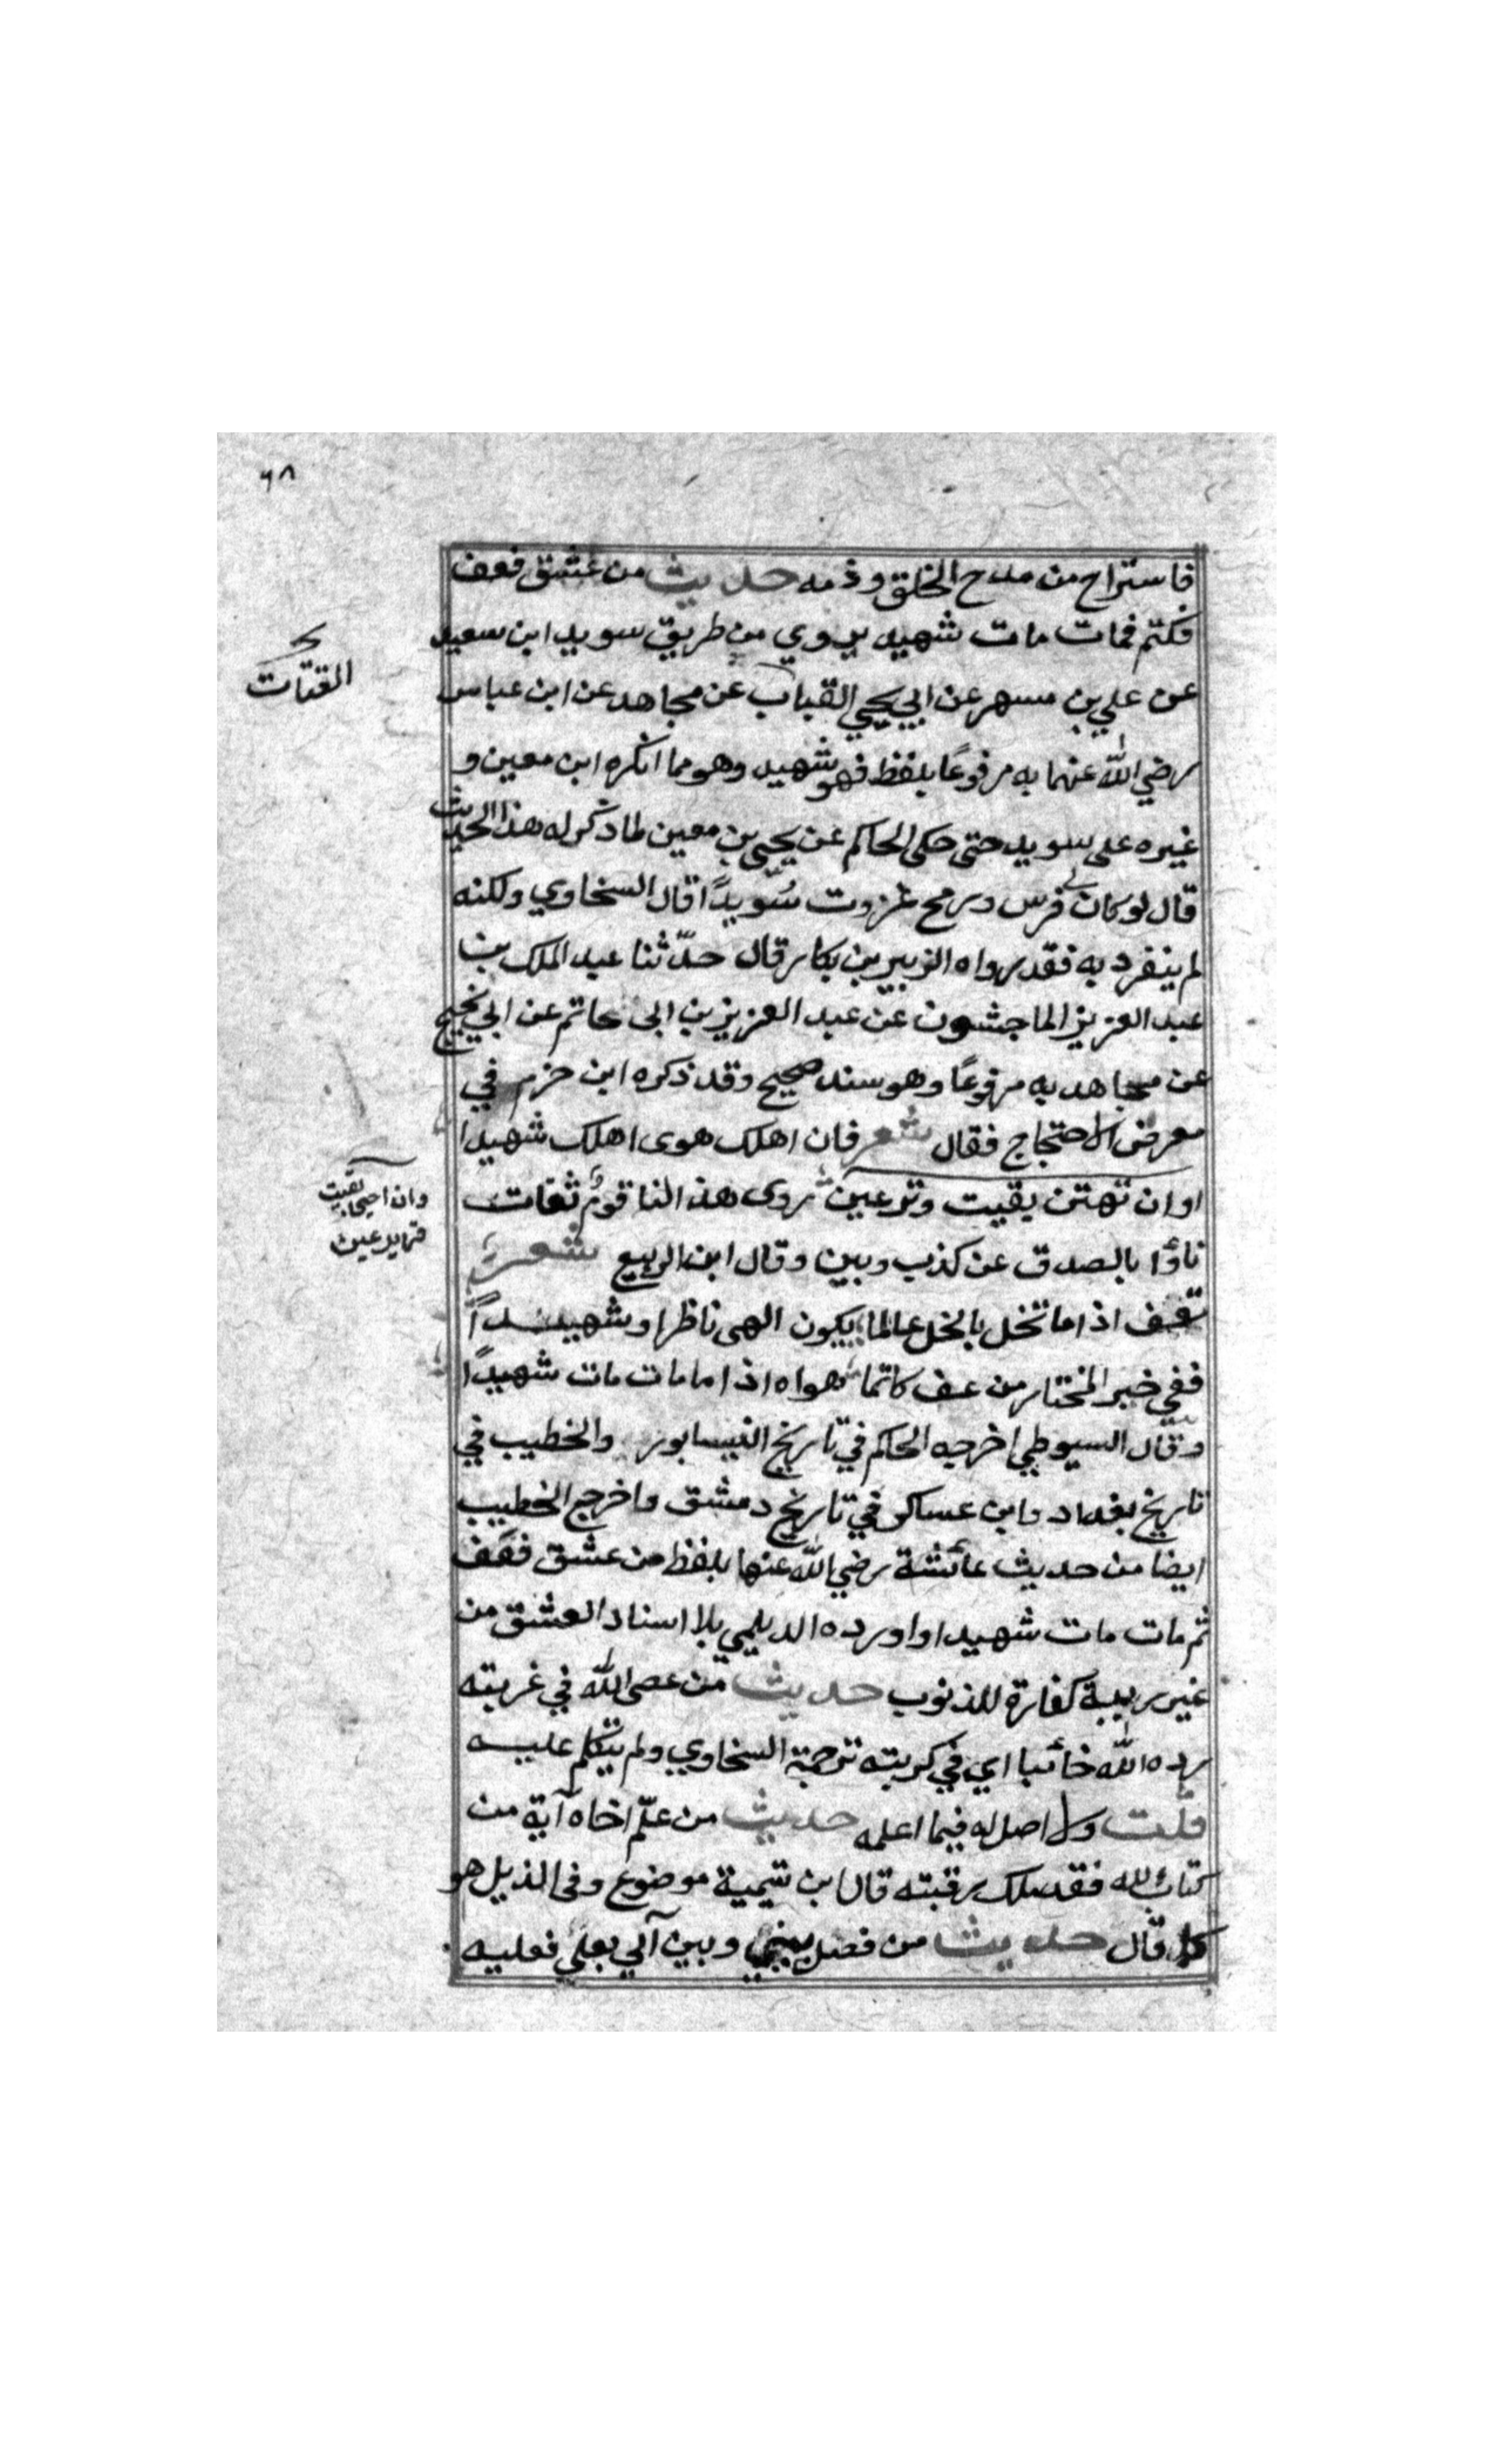 ٦٨
فاستراح من مدح الخلق وذمه حديث من عشق فعف
فكتم فمات مات شهيد يروي من طريق سويد ابن سعيد
عن علي بن مسهر عن ابي يحيي القباب عن مجاهد عن ابن عباس
القتات
رضي الله عنهما به مرفوعًا بلفظ فهو شهيد وهو مما انكره ابن معين و
غيره على سويد حتى حكى الحاكم عن يحيى بن معين لما ذكر له هذا الحديث
قال لو كان لي فرس ورمح غزوت سُويدًا قال السخاوي ولكنه
لم ينفرد به فقد رواه الزبير بن بكار قال حدّثنا عبد الملك بن
عبد العزيز الماجشون عن عبد العزيز بن ابى حاتم عن ابي نجيح
عن مجاهد به مرفوعًا وهو سند صحيح وقد ذكره ابن حزم في
معرض الاحتجاج فقال شعر فان اهلك هوى اهلك شهيدا
او ان تهتن بقيت وتر عين روى هذا لنا قوم ثقات
وان احيا بقيت
قرير عين
ناؤا بالصدق عن كذب وبين وقال ابن الربيع شعر
تعفف اذا ما تخل بالخل عالما بيكون الهى ناظرا وشهيدا
ففي خبر المختار من عف كاتما هواه اذا ما مات مات شهيدًا
وقال السيوطي اخرجه الحاكم في تاريخ النيسابور والخطيب في
تاريخ بغداد وابن عساكر في تاريخ دمشق واخرج الخطيب
ايضا من حديث عائشة رضي الله عنها بلفظ من عشق فعف
ثم مات مات شهيدا واورده الديلمي بلا اسناد العشق من
غير ريبة كفارة للذنوب حديث من عصى الله في غربته
رده الله خائبا اي في كربته ترجمة السخاوي ولم يتكلم عليه
قلت ولا اصل له فيما اعلمه حديث من علّم اخاه آية من
كتاب الله فقد ملك رقبته قال ابن تيمية موضوع وفى الذيل هو
كما قال حديث من فصل بيني وبين آلي بعلي فعليه